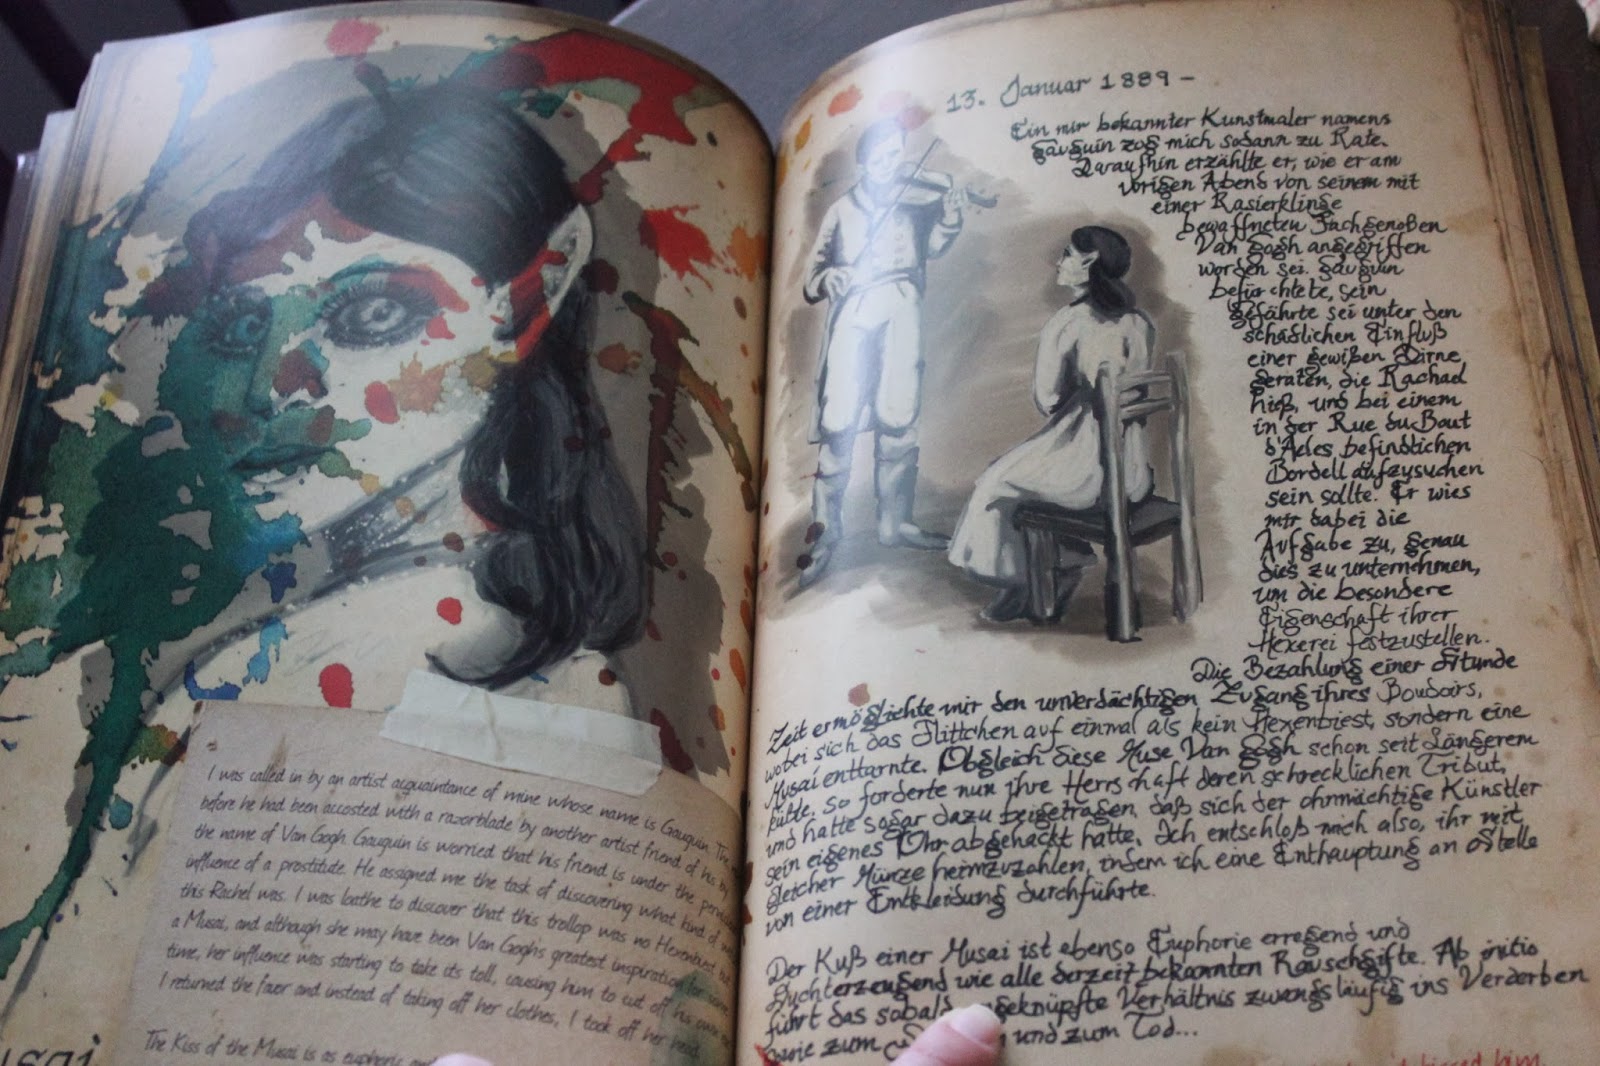 I was called in by an artist acquaintance of mine whose name is Gauguin. The
before he had been accosted with a razorblade by another artist friend of his by
the name of Van Gogh. Gauguin is worried that his friend is under the
influence of a prostitute. He assigned me the task of discovering what kind of
this Rachel was. I was loathe to discover that this trollop was no Hexenbiest but
a Musai, and although she may have been Van Gogh's greatest inspiration for some
time, her influence was starting to take its toll, causing him to cut off his own
I returned the favor and instead of taking off her clothes, I took off her head.
The Kiss of the Musai is as euphoric
13. Januar 1889 -
Ein mir bekannter Kunstmaler namens
Gauguin zog mich sodann zu Rate.
Daraufhin erzählte er, wie er am
vorigen Abend von seinem mit
einer Rasierklinge
bewaffneten Fachgenoßen
Van Gogh angegriffen
worden sei. Gauguin
befürchtete, sein
Gefährte sei unter den
schädlichen Einfluß
einer gewißen Dirne
geraten, die Rachael
hieß, und bei einem
in der Rue du Bout
d'Arles befindlichen
Bordell aufzusuchen
sein sollte. Er wies
mir dabei die
Aufgabe zu, genau
dies zu unternehmen,
um die besondere
Eigenschaft ihrer
Hexerei festzustellen.
Die Bezahlung einer Stunde
Zeit ermöglichte mir den unverdächtigen Zugang ihres Boudoirs,
wobei sich das Flittchen auf einmal als kein Hexenbiest, sondern eine
Musai enttarnte. Obgleich diese Muse Van Gogh schon seit Längerem
küßte, so forderte nun ihre Herrschaft deren schrecklichen Tribut,
und hatte sogar dazu beigetragen, daß sich der ohnmächtige Künstler
sein eigenes Ohr abgehackt hatte. Ich entschloß mich also, ihr mit
gleicher Münze heimzuzahlen, indem ich eine Enthauptung an Stelle
von einer Entkleidung durchführte.
Der Kuß einer Musai ist ebenso Euphorie erregend und
Suchterzeugend wie alle derzeit bekannten Rauschgifte. Ab initio
führt das sobald geknüpfte Verhältnis zwangsläufig ins Verderben
sowie zum und zum Tod...
kissed him.